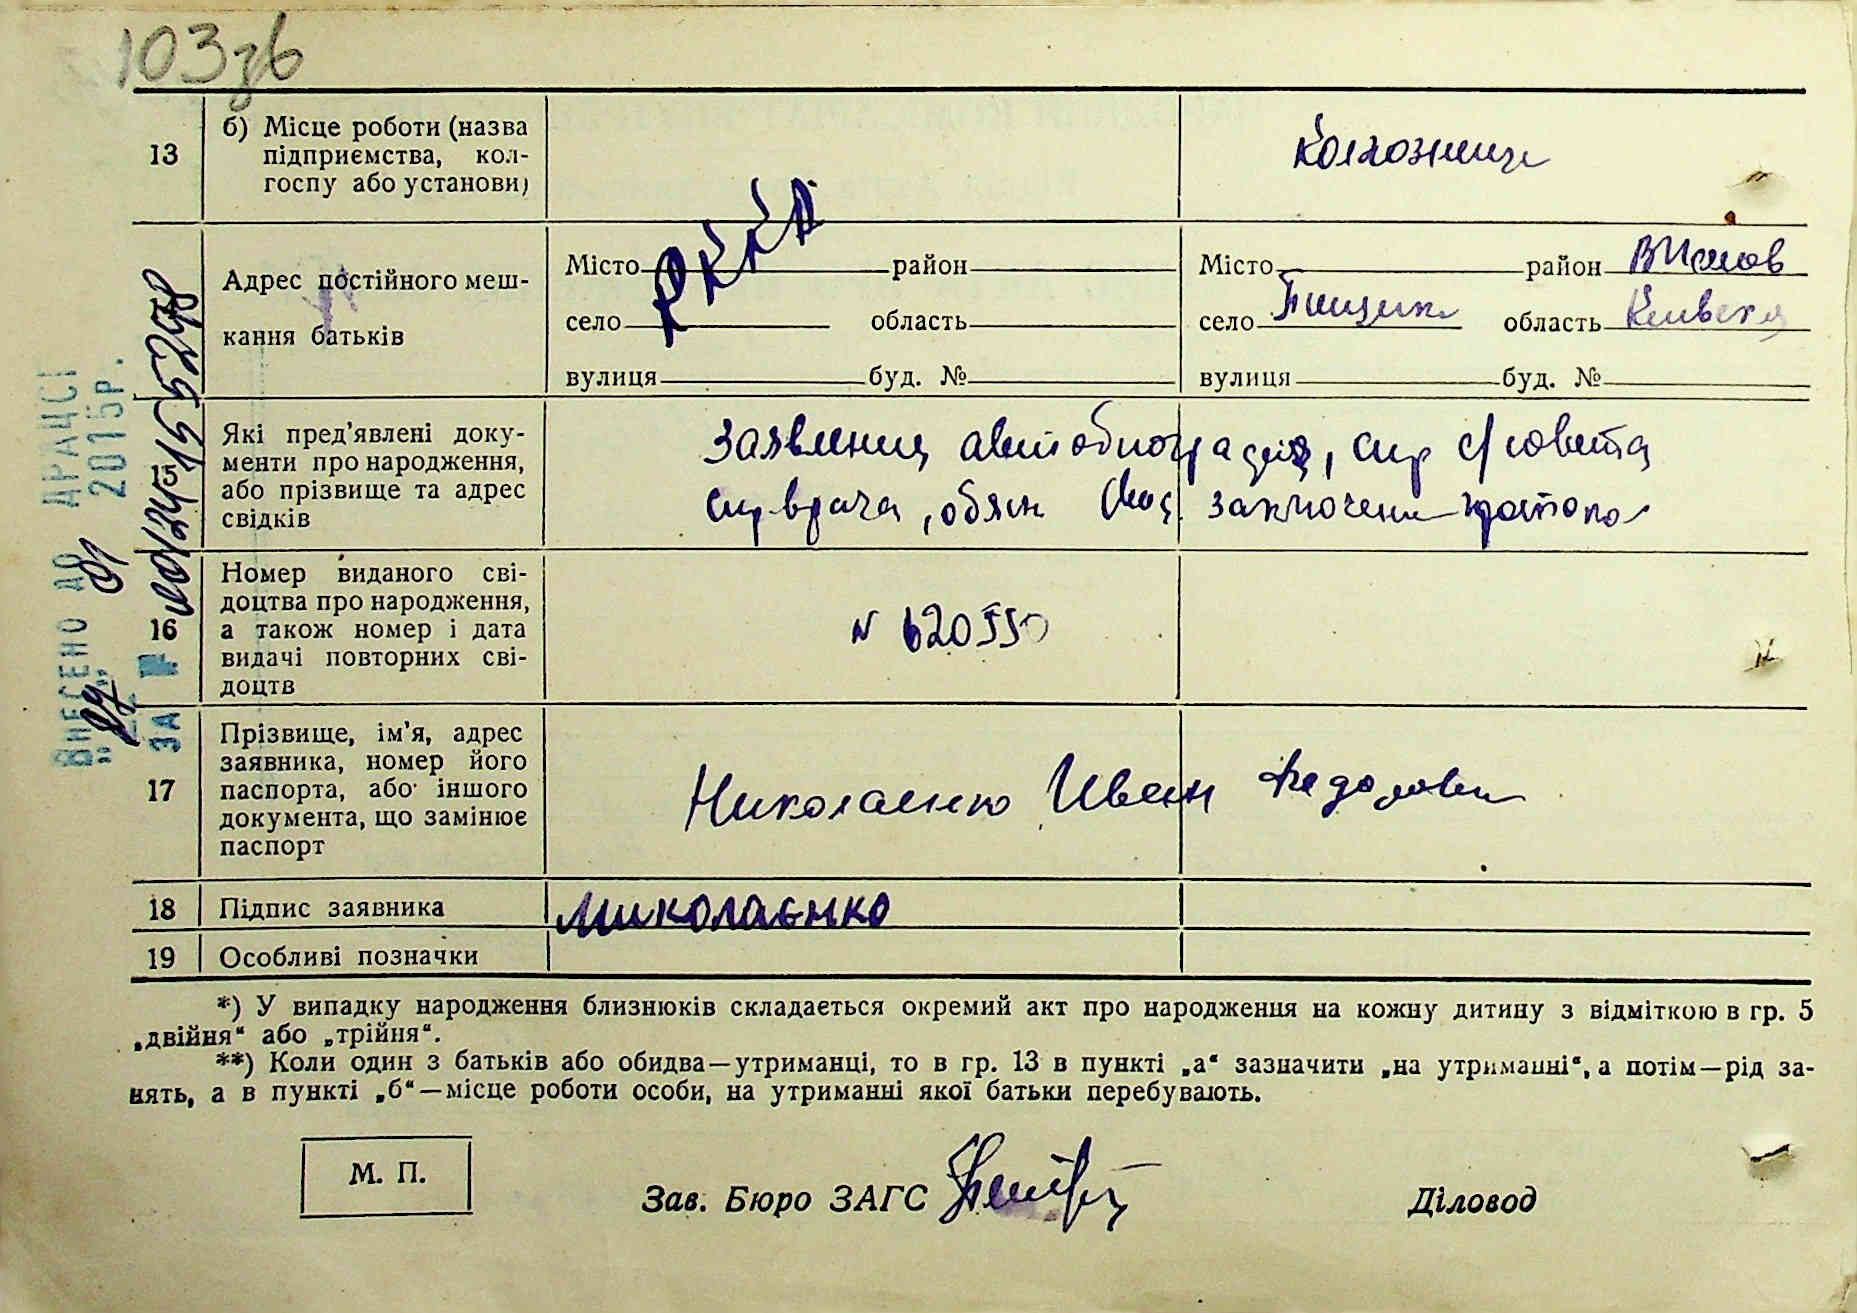 103зв
13
б) Місце роботи (назва
підприємства, кол-
госпу або установи)
Колхозниця
Адрес постійного меш-
кання батьків
Місто район
село область
вулиця буд. №
РККА
Місто район
село область Київска
вулиця буд. №
15
Які пред'явлені доку-
менти про народження,
або прізвище та адрес
свідків
Заявлениє автобиографія, спр с/совета
спр врача, обясн заключение
16
Номер виданого сві-
доцтва про народження,
а також номер і дата
видачі повторних сві-
доцтв
N 620550
17
Прізвище, ім'я, адрес
заявника, номер його
паспорта, або іншого
документа, що замінює
паспорт
Николаенко Иван Федорович
18
Підпис заявника
Миколаєнко
19
Особливі позначки
*) У випадку народження близнюків складається окремий акт про народження на кожну дитину з відміткою в гр. 5
„двійня“ або „трійня“.
**) Коли один з батьків або обидва—утриманці, то в гр. 13 в пункті „а“ зазначити „на утриманні“, а потім—рід за-
нять, а в пункті „б“—місце роботи особи, на утриманні якої батьки перебувають.
М. П.
Зав. Бюро ЗАГС
Діловод
Внесено до ДРАЦСГ
2015р.
за №